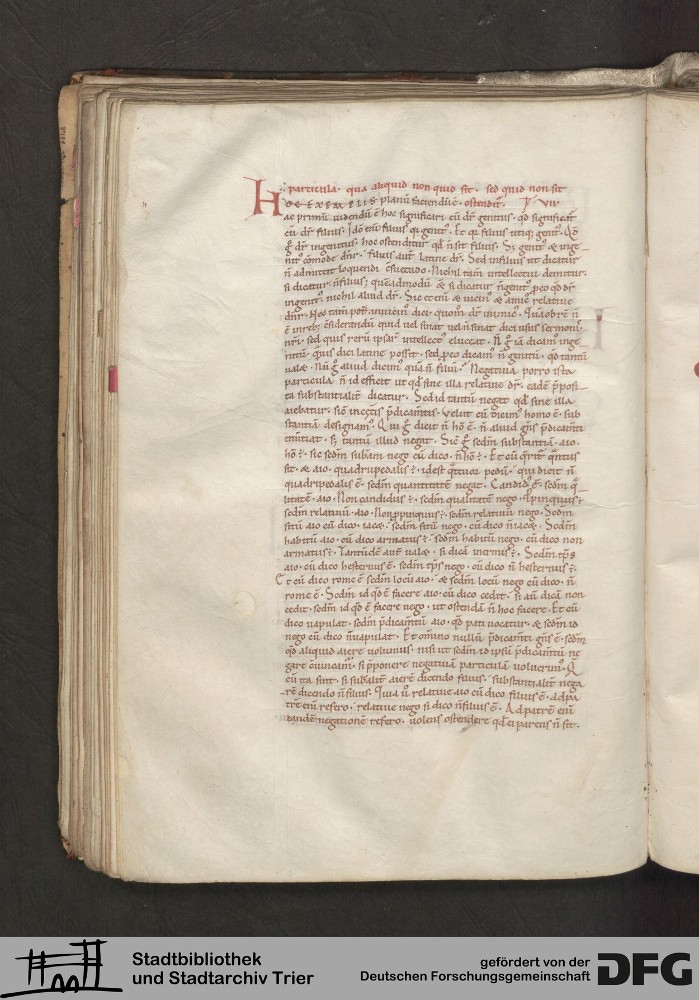 particula · qua aliquid non quid sit · sed quid non sit
HOC EXEMPLIS planū faciendū ē · ostendit · VII
ac primū uidendū ē hoc significari cū dr̄ genitus · qd̄ significat̄
cū dr̄ filius · Ideo eni filius q͛ genit᷒ · Et q͛ filius utiq; genit᷒ · Qd̄
g̊ dr̄ ingenitus hoc ostenditur qd̄ n̄ sit filius · Sꝫ genit᷒ & inge
nit᷒ cōmode dn̄r · filius aut̄ latine dr̄ · Sed infilius ut dicatur
n̄ admittit loquendi c̄suetudo · Nichil tam̄ intellectui demitur ·
si dicatur n̄ filius; quēadmodū & si dicatur n̄ genit᷒ ꝑ eo qd̄ dr̄
ingenit᷒ · nichil aliud dr̄ · Sic et eni & uicin᷒ & amic᷒ relatiue
ē in reb; c̄siderandū quid uel sinat uel n̄ sinat dici usus sermonū
nr̄i · sed quis rerū ipsarū intellect᷒ eluceat · N̄ g̊ iā dicam᷒ inge
nitū · quis dici latine possit · sed ꝑ eo dicam᷒ n̄ genitū · qd̄ tantū
ualet · Nū g̊ aliud dicim᷒ quā n̄ filiū · Negatiua porro ista
particula n̄ id efficit ut qd̄ sine illa relatiue dr̄ · eadē ꝓposi
ta substantialit̄ dicatur · Sed id tantū negat qd̄ sine illa
aiebatur · sic̄ in cet̄is p̄dicam̄tis · Velut cū dicim᷒ homo ē · sub
stantiā designam᷒ · Qui g̊ dicit n̄ hō ē · n̄ aliud gn̄s p̄dicam̄ti
enūtiat · sꝫ tantū illud negat · Sic̄ g̊ sedm̄ substantiā · aio ·
hō ē · sic sedm̄ subam̄ nego cū dico · n̄ hō ē · Et cū q̄rit᷒ q̄ntus
sit · & aio · quadrupedalis ē · id est q̄ttuor pedū · qui dicit n̄
quadripedalis ē · sedm̄ quantitatē negat · Candid᷒ ē · sedm̄ q̄
litatē · aio · Non candidus ē · sedm̄ qualitatē nego · Propinquus ē ·
sedm̄ relatiuū · aio · Non ꝓpinquus ē · sedm̄ relatiuū nego · Sedm̄
sitū aio cū dico · iacet · sedm̄ sitū nego · cū dico n̄ iacet · Sedm̄
habitū aio · cū dico armatus ē · sedm̄ habitū nego · cū dico non
armatus ē · Tantūdē aut̄ ualet · si dicā inermis ē · Sedm̄ tp̄s
aio · cū dico hesternus ē · sedm̄ tp̄s nego · cū dico n̄ hesternus ē ·
Et cū dico rome ē sedm̄ locū aio · & sedm̄ locū nego cū dico · n̄
rome ē · Sedm̄ id qd̄ ē facere aio · cū dico cedit · si aū dicā non
cedit · sedm̄ id qd̄ ē facere nego · ut ostendā n̄ hoc facere · Et cū
dico uapulat · sedm̄ p̄dicam̄tū aio · qd̄ pati uocatur · & sedm̄ id
nego cū dico n̄ uapulat · Et om̄ino nullū p̄dicam̄ti gn̄s ē · sedm̄
qd̄ aliquid aiere volumus · nisi ut sedm̄ id ipsū p̄dicam̄tū ne
gare c̄uincam᷒ · si ꝓponere negatiuā particulā voluerim᷒ · Q̄
cū ita sint · si subalit̄ aierē dicendo filius · substantialit̄ nega
rē dicendo n̄ filius · Quia ū relatiue aio cū dico filius ē · ad pa
trē eni refero · relatiue nego si dico n̄ filius ē · Ad patrē eni
eandē negationē refero · uolens ostendere qd̄ ei parens n̄ sit ·
Stadtbibliothek
und Stadtarchiv Trier
gefördert von der
Deutschen Forschungsgemeinschaft
DFG